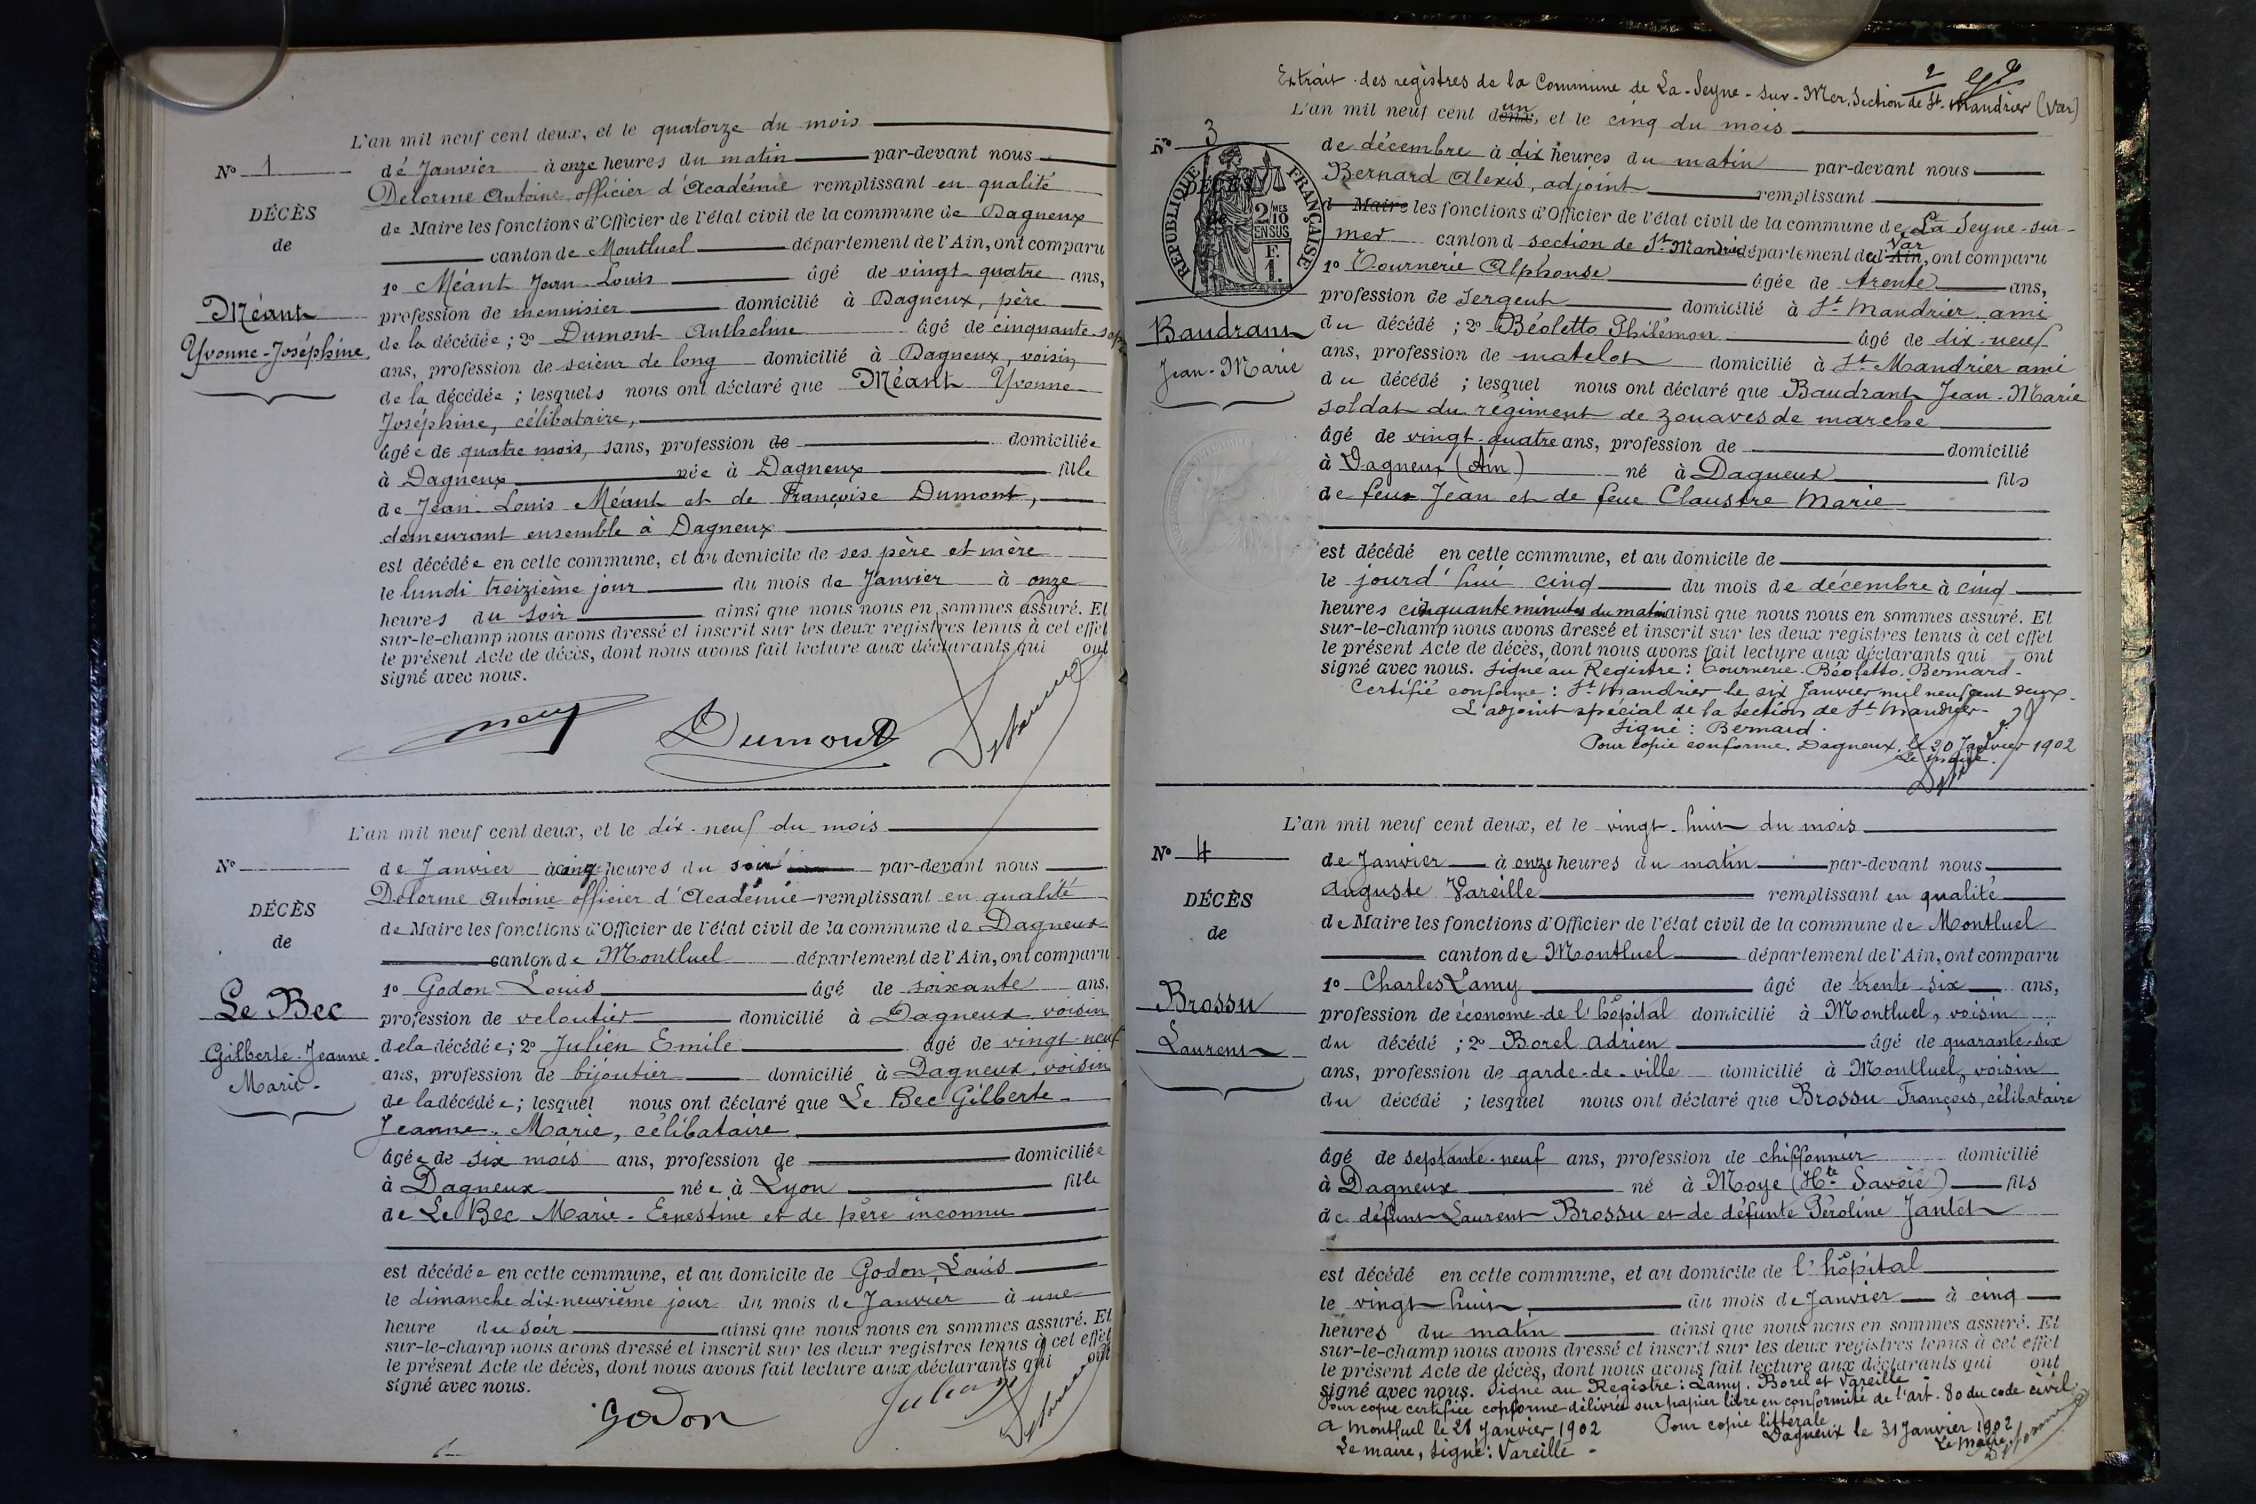 L'an mil neuf cent deux, et le quatorze du mois
No 1
de Janvier à onze heures du matin par-devant nous
Delorme Antoine officier d'Académie remplissant en qualité
DÉCÈS
de Maire les fonctions d'Officier de l'état civil de la commune de Dagneux
de
canton de Montluel département de l'Ain, ont comparu
1o Méant Jean Louis âgé de vingt quatre ans,
Méant
profession de menuisier domicilié à Dagneux, père
Yvonne-Joséphine
de la décédée ; 2o Dumont Anthelme âgé de cinquante-sept
ans, profession de scieur de long domicilié à Dagneux, voisin
de la décédée ; lesquels nous ont déclaré que Méant Yvonne
Joséphine, célibataire,
âgée de quatre mois, sans, profession de domiciliée
à Dagneux née à Dagneux fille
de Jean-Louis Méant et de Françoise Dumont,
demeurant ensemble à Dagneux
est décédée en cette commune, et au domicile de ses père et mère
le lundi treizième jour du mois de Janvier à onze
heures du soir ainsi que nous nous en sommes assuré. Et
sur-le-champ nous avons dressé et inscrit sur les deux registres tenus à cet effet
le présent Acte de décès, dont nous avons fait lecture aux déclarants qui ont
signé avec nous.
Dumont Delorme
L'an mil neuf cent deux, et le dix-neuf du mois
No
de Janvier à cinq heures du soir par-devant nous
Delorme Antoine officier d'Académie remplissant en qualité
DÉCÈS
de Maire les fonctions d'Officier de l'état civil de la commune de Dagneux
de
canton de Montluel département de l'Ain, ont comparu
1o Godon Louis âgé de soixante ans,
Le Bec
profession de veloutier domicilié à Dagneux voisin
Gilberte-Jeanne
de la décédée ; 2o Julien Emile âgé de vingt-neuf
Marie-
ans, profession de bijoutier domicilié à Dagneux, voisin
de la décédée ; lesquel nous ont déclaré que Le Bec Gilberte-
Jeanne-Marie, célibataire
âgée de six mois ans, profession de domiciliée
à Dagneux née à Lyon fille
de Le Bec Marie-Ernestine et de père inconnu
est décédée en cette commune, et au domicile de Godon, Louis
le dimanche dix-neuvième jour du mois de Janvier à une
heure du soir ainsi que nous nous en sommes assuré. Et
sur-le-champ nous avons dressé et inscrit sur les deux registres tenus à cet effet
le présent Acte de décès, dont nous avons fait lecture aux déclarants qui ont
signé avec nous.
Godon Julien Delorme
2
Extrait des registres de la Commune de La-Seyne-sur-Mer. Section de St-Mandrier (Var)
L'an mil neuf cent deux un, et le cinq du mois
No 3
de décembre à dix heures du matin par-devant nous
Bernard Alexis, adjoint remplissant
DÉCÈS
de
RÉPUBLIQUE FRANÇAISE
2/10 MES EN SUS
F. 1.
d Maire les fonctions d'Officier de l'état civil de la commune de La Seyne-sur-
mer canton d section de St Mandrier département de l'Ain Var, ont comparu
1o Tournerie Alphonse âgée de trente ans,
profession de sergent domicilié à St Mandrier, ami
Baudrant
Jean-Marie
du décédé ; 2o Béoletto Philémon âgé de dix-neuf
ans, profession de matelot domicilié à St-Mandrier ami
du décédé ; lesquel nous ont déclaré que Baudrant Jean-Marie
soldat du régiment de zouaves de marche
âgé de vingt-quatre ans, profession de domicilié
à Dagneux (Ain) né à Dagneux fils
de feu Jean et de feue Claustre Marie
est décédé en cette commune, et au domicile de
le jourd'hui cinq du mois de décembre à cinq
heures cinquante minutes du matin ainsi que nous nous en sommes assuré. Et
sur-le-champ nous avons dressé et inscrit sur les deux registres tenus à cet effet
le présent Acte de décès, dont nous avons fait lecture aux déclarants qui ont
signé avec nous. Signé au Registre : Tournerie. Béoletto. Bernard.
Certifié conforme : St-Mandrier le six Janvier mil neuf cent deux.
L'adjoint spécial de la Section de St Mandrier-
Signé : Bernard.
Pour copie conforme. Dagneux, le 20 Janvier 1902
Le maire.
Delorme
L'an mil neuf cent deux, et le vingt-huit du mois
No 4
de Janvier à onze heures du matin par-devant nous
Auguste Vareille remplissant en qualité
DÉCÈS
de Maire les fonctions d'Officier de l'état civil de la commune de Montluel
de
canton de Montluel département de l'Ain, ont comparu
1o Charles Lamy âgé de trente-six ans,
Brossu
profession de économe de l'hôpital domicilié à Montluel, voisin
Laurent
du décédé ; 2o Borel Adrien âgé de quarante-six
ans, profession de garde-de-ville domicilié à Montluel, voisin
du décédé ; lesquel nous ont déclaré que Brossu François, célibataire
âgé de septante-neuf ans, profession de chiffonnier domicilié
à Dagneux né à Moye (Hte Savoie) fils
de défunt Laurent Brossu et de défunte Péroline Jantet
est décédé en cette commune, et au domicile de l'hôpital
le vingt huit du mois de Janvier à cinq
heures du matin ainsi que nous nous en sommes assuré. Et
sur-le-champ nous avons dressé et inscrit sur les deux registres tenus à cet effet
le présent Acte de décès, dont nous avons fait lecture aux déclarants qui ont
signé avec nous. Signé au Registre : Lamy, Borel et Vareille
Pour copie certifiée conforme délivrée sur papier libre en conformité de l'art. 80 du code civil.
A Montluel le 28 Janvier 1902 Pour copie littérale
Le maire, signé : Vareille - Dagneux le 31 Janvier 1902
Le Maire,
Delorme